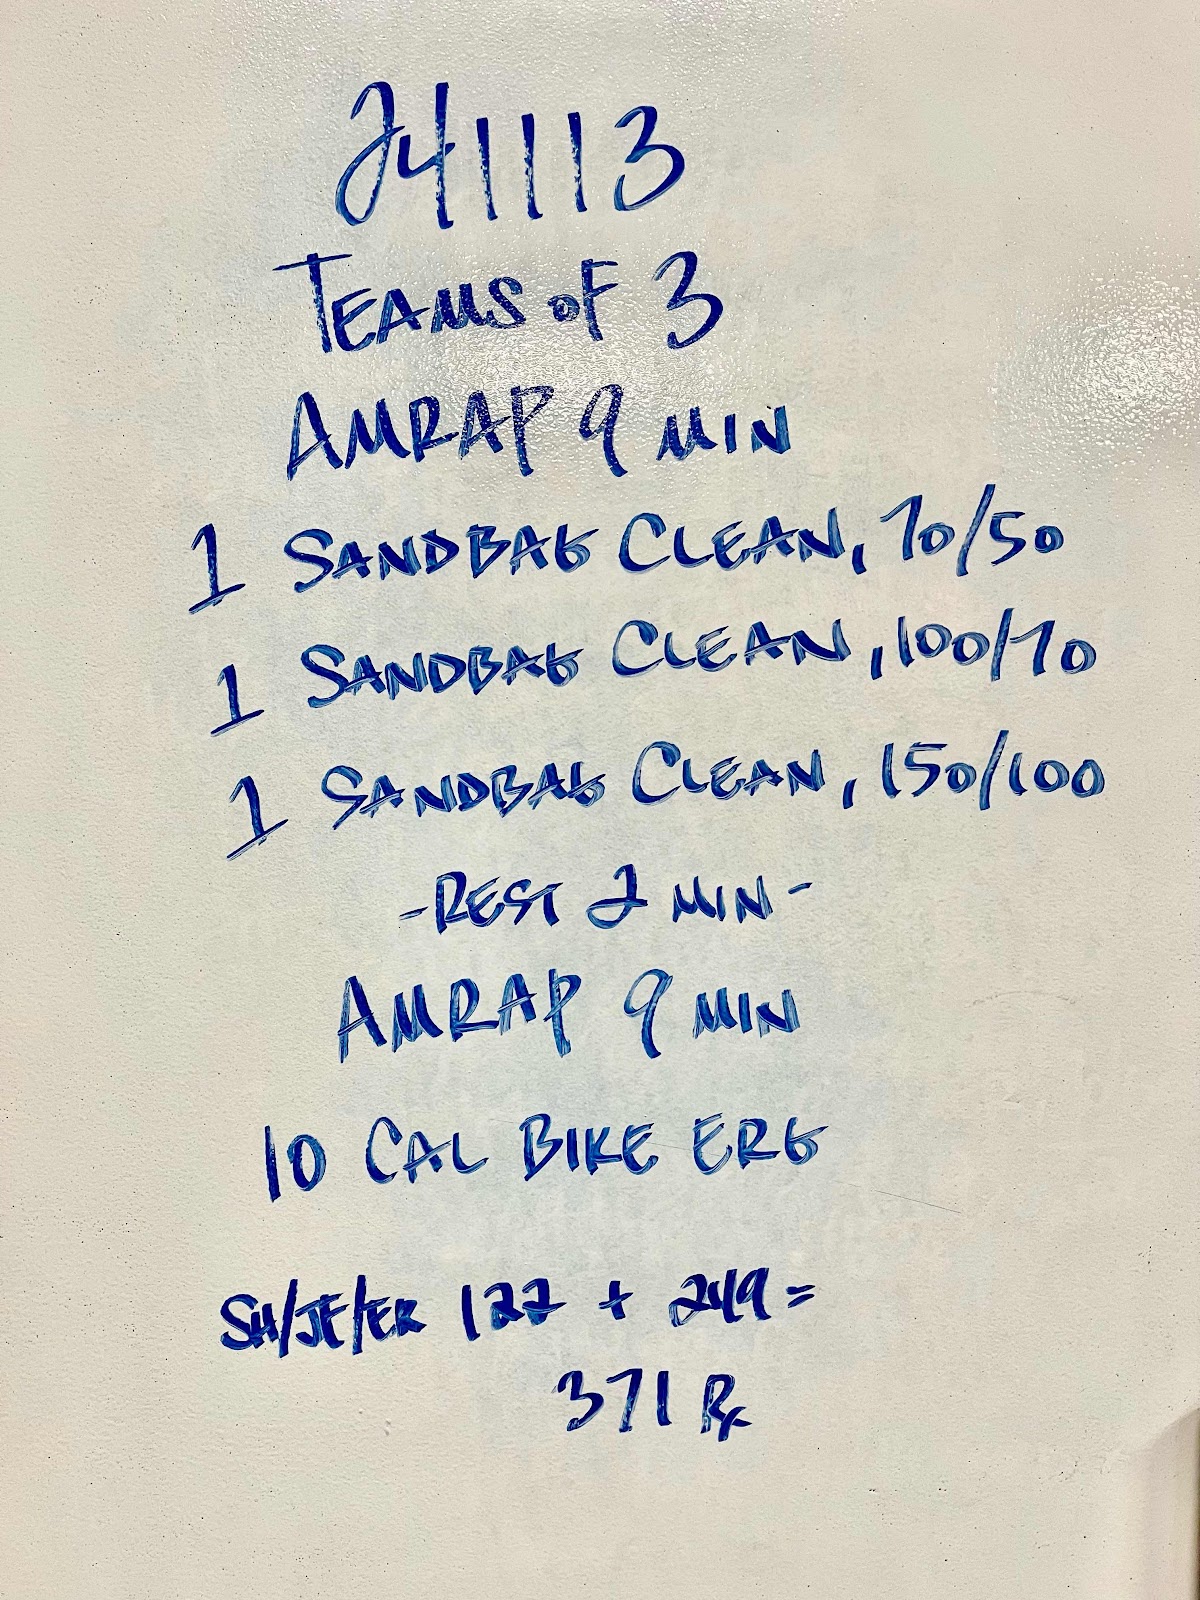 241113
TEAMS OF 3
AMRAP 9 MIN
1 SANDBAG CLEAN, 70/50
1 SANDBAG CLEAN, 100/70
1 SANDBAG CLEAN, 150/100
-REST 2 MIN-
AMRAP 9 MIN
10 CAL BIKE ERG
SH/JE/ER 122 + 249 =
371 Rx